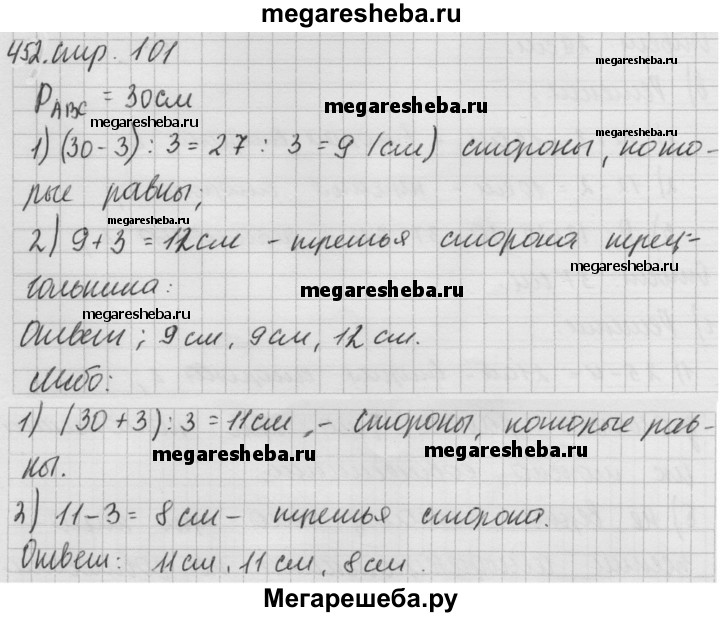 megaresheba.ru
452.стр. 101
megaresheba.ru
P ABC = 30см
megaresheba.ru
megaresheba.ru
megaresheba.ru
1) (30-3) : 3 = 27 : 3 = 9 (см) стороны, кото-
рые равны;
megaresheba.ru
2) 9+3 = 12см - третья сторона треу-
megaresheba.ru
гольника:
megaresheba.ru
Ответ; 9см, 9см, 12см.
Либо:
1) (30+3) : 3 = 11см, - стороны, которые рав-
ны.
megaresheba.ru
megaresheba.ru
2) 11-3 = 8см - третья сторона.
Ответ: 11см, 11см, 8см.
megaresheba.ru
Мегарешеба.ру